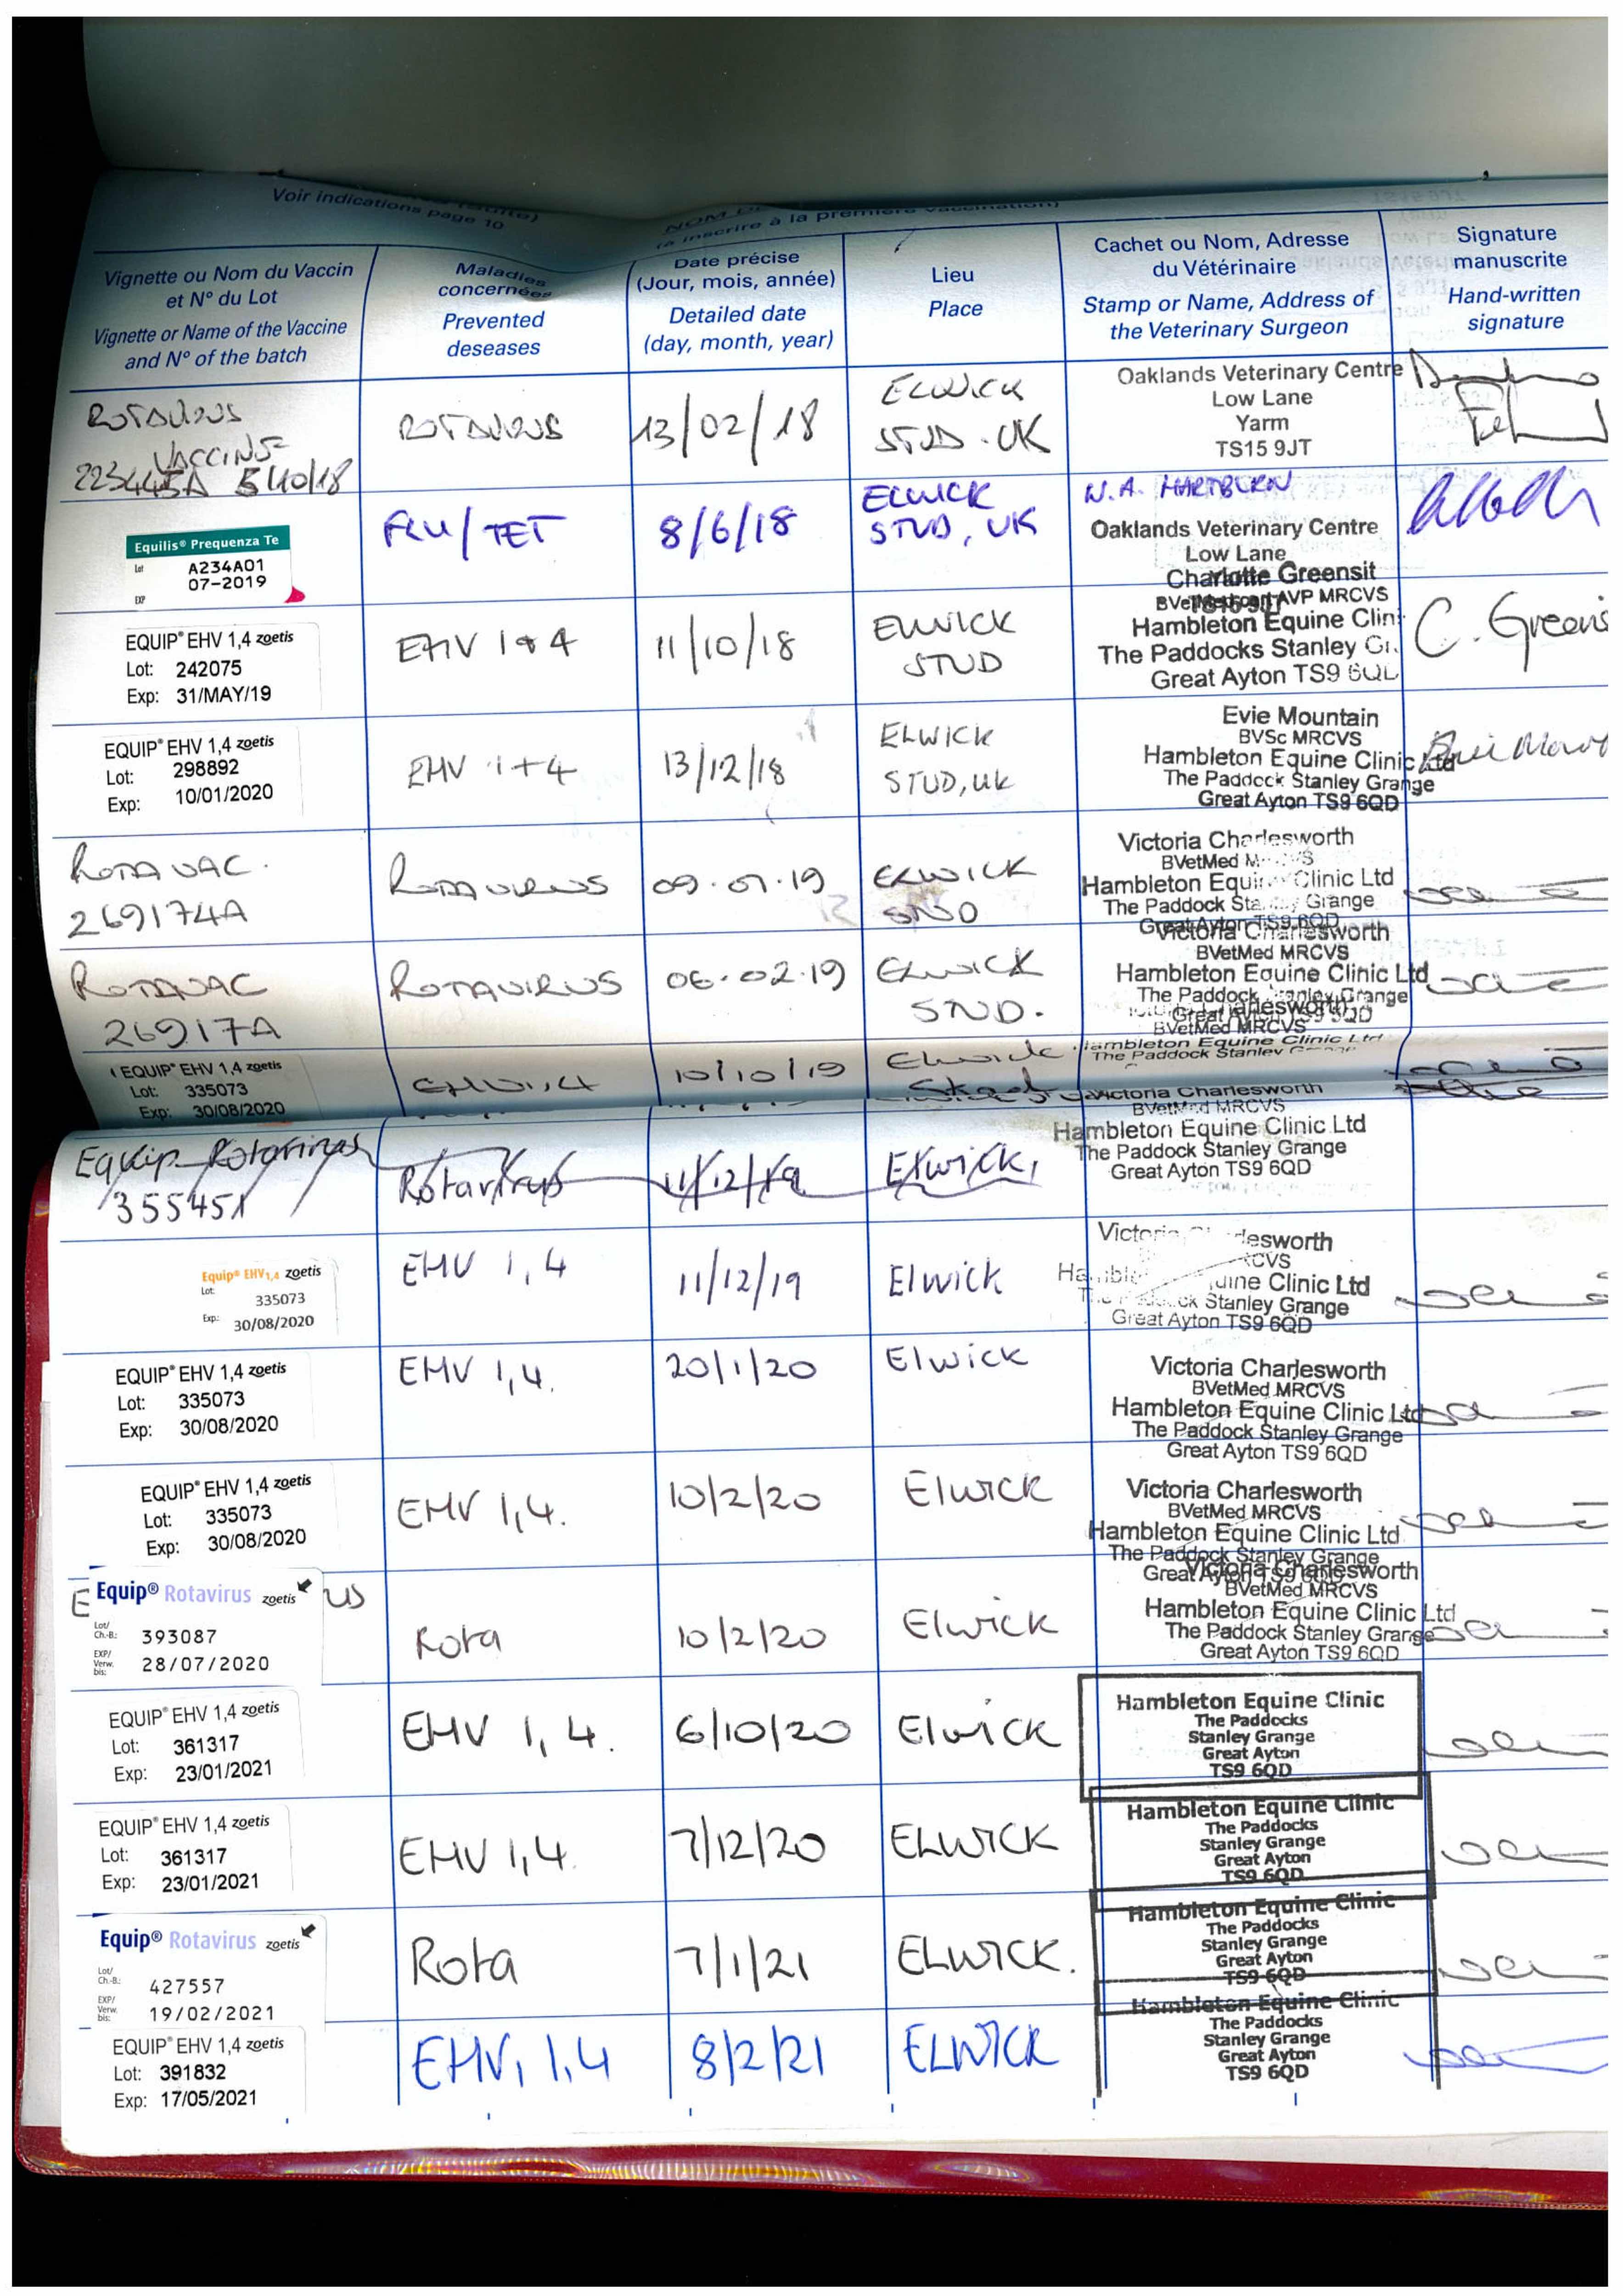 Voir indications page 10
(à inscrire à la première vaccination)
Vignette ou Nom du Vaccin
et N° du Lot
Vignette or Name of the Vaccine
and N° of the batch
Maladies
concernées
Prevented
deseases
Date précise
(Jour, mois, année)
Detailed date
(day, month, year)
Lieu
Place
Cachet ou Nom, Adresse
du Vétérinaire
Stamp or Name, Address of
the Veterinary Surgeon
Signature
manuscrite
Hand-written
signature
ROTAVIRUS
VACCINE
223445A 5/10/18
ROTAVIRUS
13/02/18
ELWICK
STUD. UK
Oaklands Veterinary Centre
Low Lane
Yarm
TS15 9JT
Equilis® Prequenza Te
Lot A234A01
07-2019
EXP
FLU/TET
8/6/18
ELWICK
STUD, UK
N.A. HARTBURN
Oaklands Veterinary Centre
Low Lane
EQUIP® EHV 1,4 zoetis
Lot: 242075
Exp: 31/MAY/19
EHV 1&4
11/10/18
ELWICK
STUD
Charlotte Greensit
AVP MRCVS
Hambleton Equine Clini
The Paddocks Stanley Gr.
Great Ayton TS9 6QD
C. Greens
EQUIP® EHV 1,4 zoetis
Lot: 298892
Exp: 10/01/2020
EHV 1+4
13/12/18
ELWICK
STUD, UK
Evie Mountain
BVSc MRCVS
Hambleton Equine Clinic Ltd
The Paddock Stanley Grange
Great Ayton TS9 6QD
ROTAVAC.
269174A
ROTAVIRUS
09.01.19
ELWICK
STUD
Victoria Charlesworth
BVetMed
Hambleton Equine Clinic Ltd
The Paddock Stanley Grange
Great Ayton TS9 6QD
ROTAVAC
26917A
ROTAVIRUS
06.02.19
ELWICK
STUD.
Victoria Charlesworth
BVetMed MRCVS
Hambleton Equine Clinic Ltd
The Paddock Stanley Grange
Great Ayton TS9 6QD
EQUIP® EHV 1,4 zoetis
Lot: 335073
Exp: 30/08/2020
EHV 1,4
10/10/19
Elwick
Stud
BVetMed MRCVS
Hambleton Equine Clinic Ltd
The Paddock Stanley
Equip Rotavirus
355451
Rotavirus
11/12/19
Elwick,
Victoria Charlesworth
BVetMed MRCVS
Hambleton Equine Clinic Ltd
The Paddock Stanley Grange
Great Ayton TS9 6QD
Equip® EHV1,4 zoetis
Lot: 335073
Exp.: 30/08/2020
EHV 1,4
11/12/19
Elwick
Hambleton Equine Clinic Ltd
Stanley Grange
Great Ayton TS9 6QD
EQUIP® EHV 1,4 zoetis
Lot: 335073
Exp: 30/08/2020
EHV 1,4.
20/1/20
Elwick
Victoria Charlesworth
BVetMed MRCVS
Hambleton Equine Clinic Ltd
The Paddock Stanley Grange
Great Ayton TS9 6QD
EQUIP® EHV 1,4 zoetis
Lot: 335073
Exp: 30/08/2020
EHV 1,4.
10/2/20
Elwick
Victoria Charlesworth
BVetMed MRCVS
Hambleton Equine Clinic Ltd
The Paddock Stanley Grange
Great Ayton TS9 6QD
E Equip® Rotavirus zoetis us
Lot/
Ch.-B.: 393087
EXP/
Verw.
bis: 28/07/2020
Rota
10/2/20
Elwick
Victoria Charlesworth
BVetMed MRCVS
Hambleton Equine Clinic Ltd
The Paddock Stanley Grange
Great Ayton TS9 6QD
EQUIP® EHV 1,4 zoetis
Lot: 361317
Exp: 23/01/2021
EHV 1,4.
6/10/20
Elwick
Hambleton Equine Clinic
The Paddocks
Stanley Grange
Great Ayton
TS9 6QD
EQUIP® EHV 1,4 zoetis
Lot: 361317
Exp: 23/01/2021
EHV 1,4.
7/12/20
ELWICK
Hambleton Equine Clinic
The Paddocks
Stanley Grange
Great Ayton
TS9 6QD
Equip® Rotavirus zoetis
Lot/
Ch.-B.: 427557
EXP/
Verw.
bis: 19/02/2021
Rota
7/1/21
ELWICK.
Hambleton Equine Clinic
The Paddocks
Stanley Grange
Great Ayton
TS9 6QD
EQUIP® EHV 1,4 zoetis
Lot: 391832
Exp: 17/05/2021
EHV, 1,4
8/2/21
ELWICK
Hambleton Equine Clinic
The Paddocks
Stanley Grange
Great Ayton
TS9 6QD